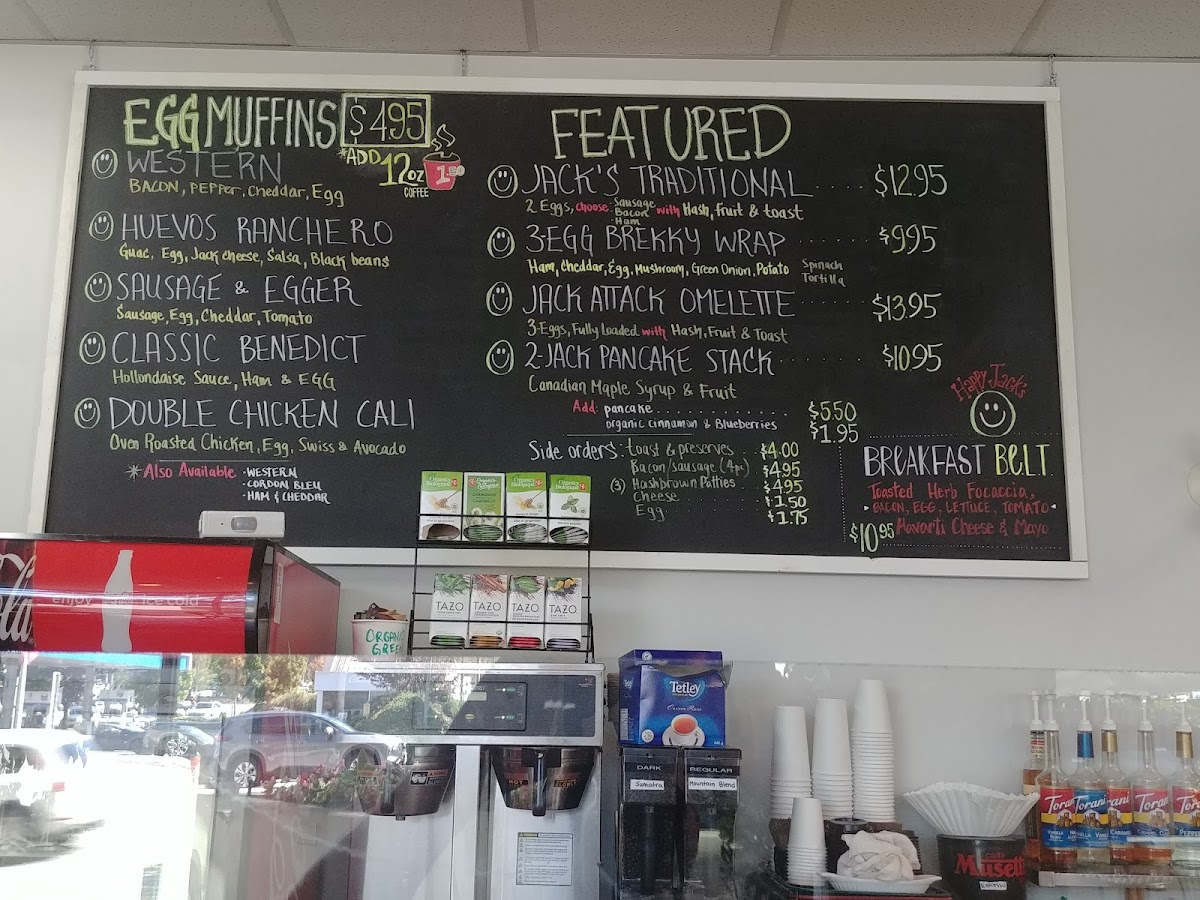 EGG MUFFINS $4.95
*ADD 12oz COFFEE 1.50
WESTERN
BACON, PEPPER, Cheddar, Egg
HUEVOS RANCHERO
Guac, Egg, Jack cheese, Salsa, Black beans
SAUSAGE & EGGER
Sausage, Egg, Cheddar, Tomato
CLASSIC BENEDICT
Hollondaise Sauce, Ham & EGG
DOUBLE CHICKEN CALI
Oven Roasted Chicken, Egg, Swiss & Avocado
*Also Available
· WESTERN
· CORDON BLEU
· HAM & CHEDDAR
FEATURED
JACK'S TRADITIONAL $12.95
2 Eggs, choose: Sausage Bacon Ham with Hash, fruit & toast
3-EGG BREKKY WRAP $9.95
Ham, Cheddar, Egg, Mushroom, Green Onion, Potato Spinach Tortilla
JACK ATTACK OMELETTE $13.95
3-Eggs, Fully Loaded with Hash, Fruit & Toast
2-JACK PANCAKE STACK $10.95
Canadian Maple Syrup & Fruit
Add: pancake $5.50
organic cinnamon & Blueberries $1.95
Side orders: toast & preserves $4.00
Bacon/sausage (4pc) $4.95
(3) Hashbrown Patties $4.95
Cheese $1.50
Egg $1.75
Happy Jack's
BREAKFAST BELT
Toasted Herb Focaccia,
BACON, EGG, LETTUCE, TOMATO
Havarti Cheese & Mayo
$10.95
enjoy ice cold
ORGANIC GREEN
TAZO TAZO TAZO TAZO
Tetley
DARK
Sumatra
REGULAR
Mountain Blend
Musetti
ESPRESSO
Torani